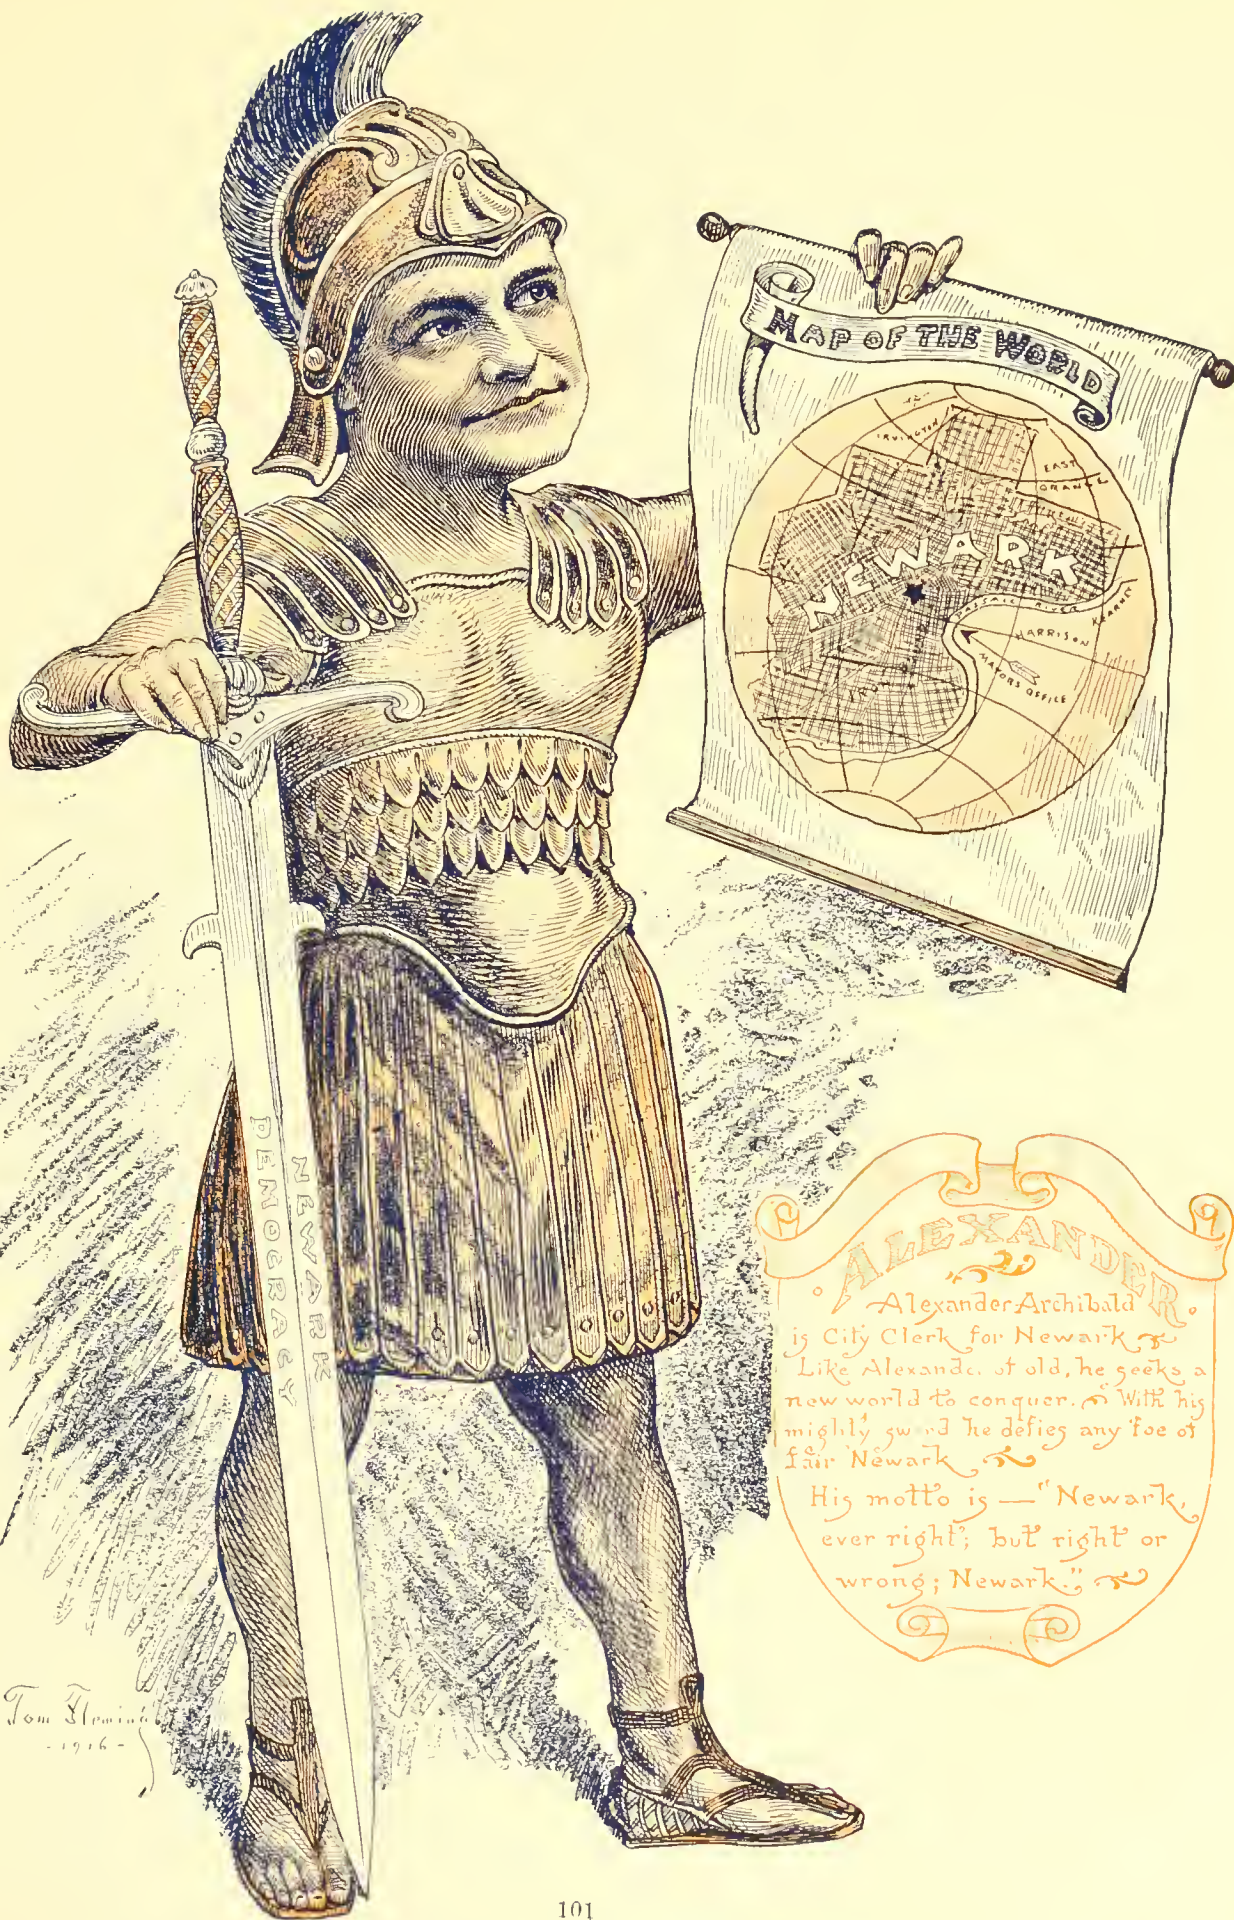 MAP OF THE WORLD
IRVINGTON
EAST
ORANGE
NEWARK
PASSAIC RIVER
KEARNEY
HARRISON
MAYORS OFFICE
NEWARK
DEMOCRACY
ALEXANDER
Alexander Archibald
is City Clerk for Newark
Like of old, he seeks a
new world to conquer. With his
mighty he defies any foe of
fair Newark
His motto is — "Newark,
ever right; but right or
wrong; Newark."
Tom Fleming
- 1916 -
101